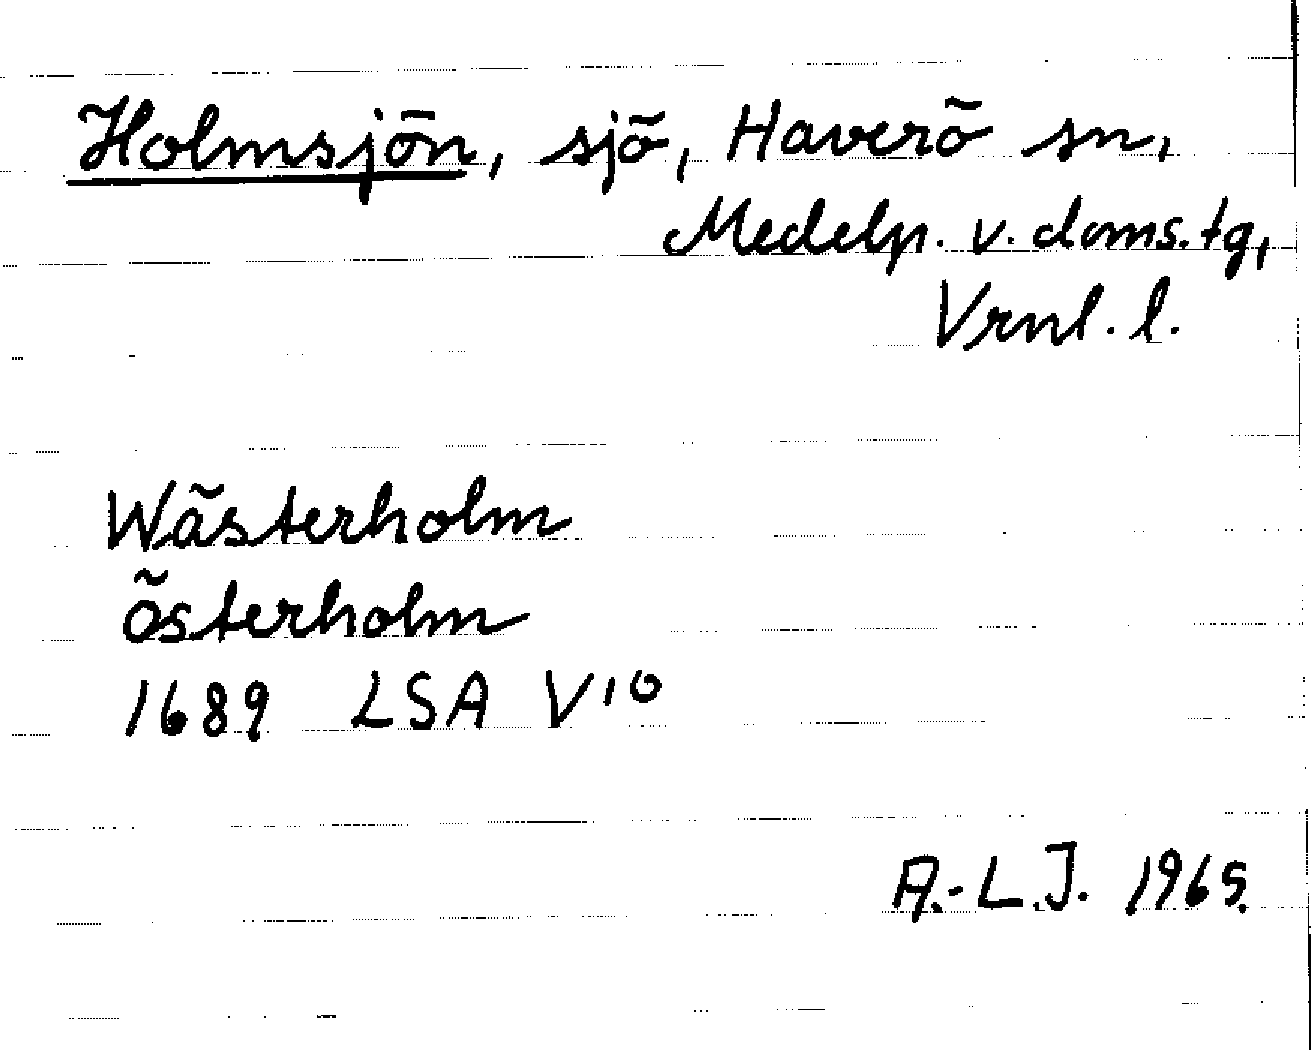 Holmsjön, sjö, Haverö sn,
Medelp. v. doms.tg,
Vrnl. l.
Wästerholm
österholm
1689 LSA V10
A.-L.J. 1965.